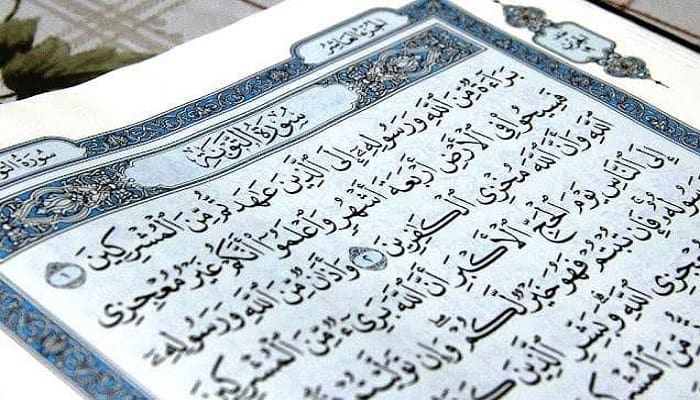 الجزء العاشر
سُورَةُ التَّوْبَةِ
بَرَآءَةٌ مِّنَ ٱللَّهِ وَرَسُولِهِۦٓ إِلَى ٱلَّذِينَ عَٰهَدتُّم مِّنَ ٱلْمُشْرِكِينَ ١
فَسِيحُوا۟ فِى ٱلْأَرْضِ أَرْبَعَةَ أَشْهُرٍ وَٱعْلَمُوٓا۟ أَنَّكُمْ غَيْرُ مُعْجِزِى
ٱللَّهِ وَأَنَّ ٱللَّهَ مُخْزِى ٱلْكَٰفِرِينَ ٢ وَأَذَٰنٌ مِّنَ ٱللَّهِ وَرَسُولِهِۦٓ
إِلَى ٱلنَّاسِ يَوْمَ ٱلْحَجِّ ٱلْأَكْبَرِ أَنَّ ٱللَّهَ بَرِىٓءٌ مِّنَ ٱلْمُشْرِكِينَ
فَإِن تُبْتُمْ فَهُوَ خَيْرٌ لَّكُمْ وَإِن تَوَلَّيْتُمْ
ٱللَّهِ وَبَشِّرِ ٱلَّذِينَ